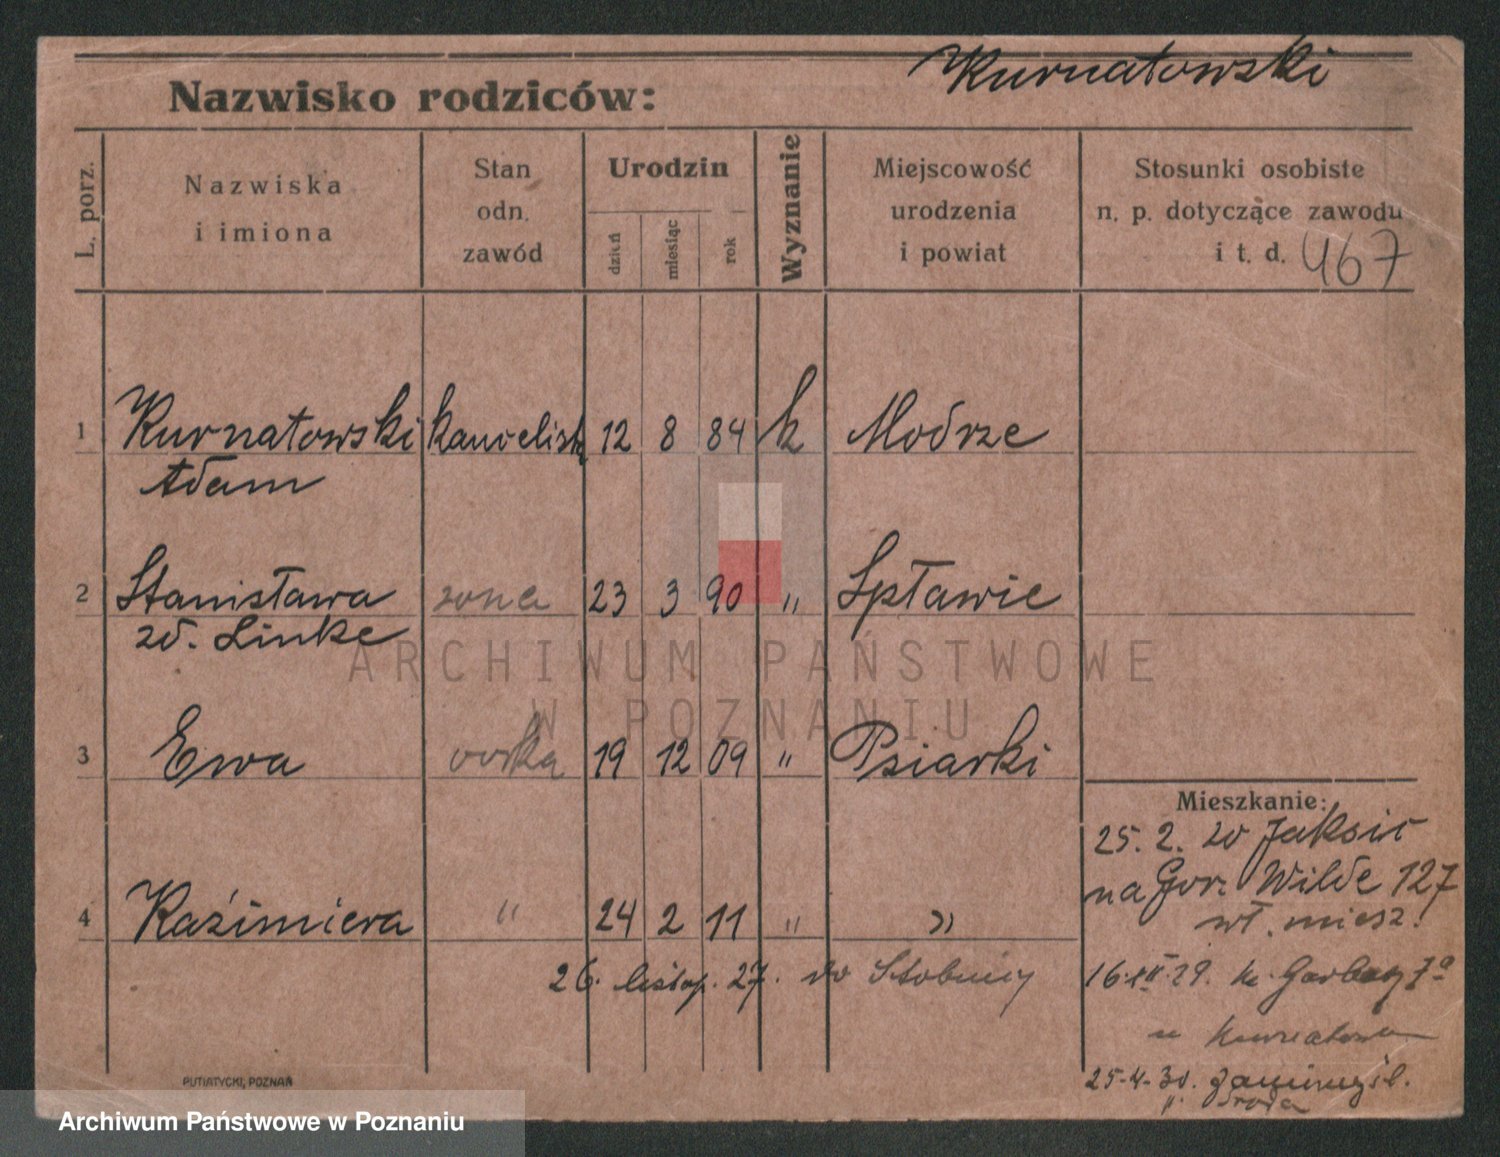 Nazwisko rodziców: Kurnatowski
L. porz.
Nazwiska
i imiona
Stan
odn.
zawód
Urodzin
dzień
miesiąc
rok
Wyznanie
Miejscowość
urodzenia
i powiat
Stosunki osobiste
n. p. dotyczące zawodu
i t. d. 467
1 Kurnatowski kancelista 12 8 84 k Modrze
Adam
2 Stanisława żona 23 3 90 " Spławie
zd. Linke
3 Ewa córka 19 12 09 " Psiarki
4 Kaźimiera " 24 2 11 " "
26. listop. 27. do Stobnicy
Mieszkanie:
25. 2. 20 Jaksic
na Gór. Wilde 127
wł. miesz.
16.XII.29. Garbary 7a
u Kurnatowska
25-4-30. Zaniemyśl.
" Środa
PUTIATYCKI, POZNAŃ
ARCHIWUM PAŃSTWOWE
W POZNANIU
Archiwum Państwowe w Poznaniu